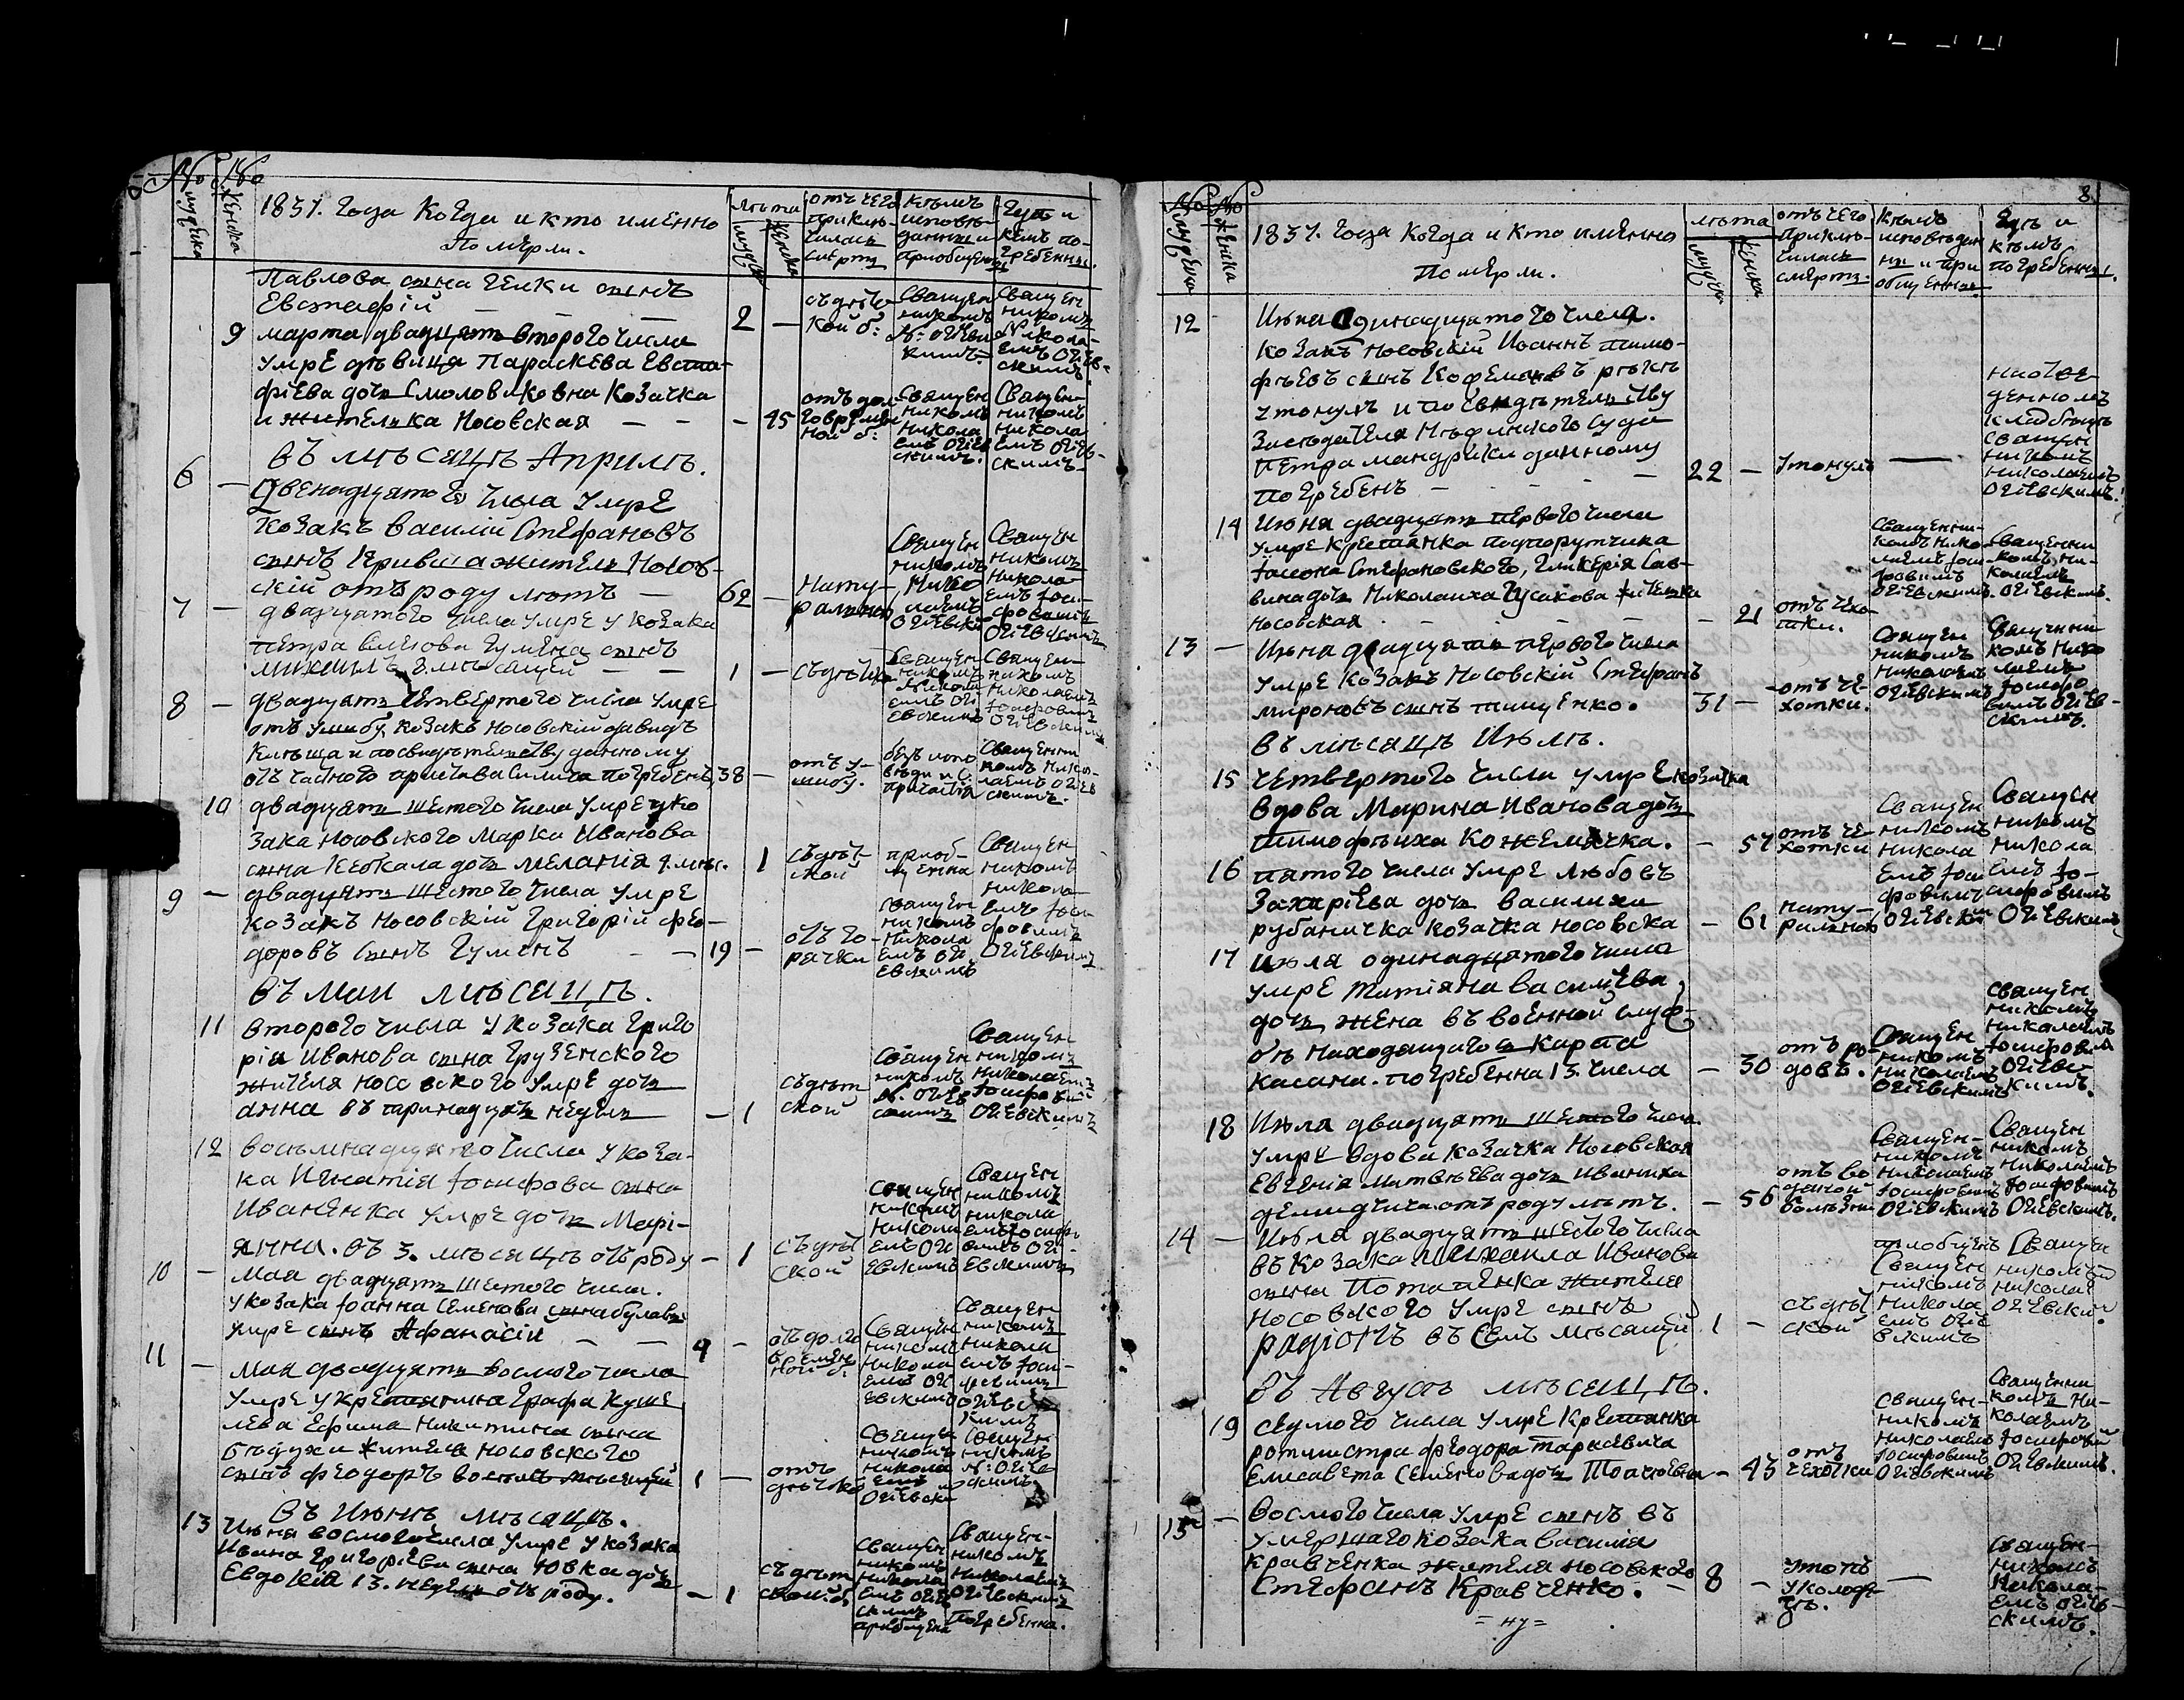 № №
мужеска
женска
1837. Года Когда и кто именно
Померли.
лѣта
мужеска
женска
отъ чего
приклю-
чилась
смерть
кѣмъ
исповѣ-
даны и
приобщены
Гдѣ и
кемъ по-
гребенны.
Павлова сына Генки сынъ
Евстафій — — —
2 —
съ дѣтс
кой б:
Священ
никомъ
Н: Огіев
кимъ
Священ
никомъ
Никола-
емъ Огіев-
скимъ.
9
марта двадцать второго числа
умре дѣвица Параскева Евста-
фіева дочь Смоловиковна Козачка
и жителька Носовская — —
— 45
отъ дол-
говремен
ной б:
Священ
никомъ
Никола
емъ Огіев
скимъ.
Священ-
никомъ
Никола
емъ Огіев-
скимъ-
Въ мѣсяцѣ Априлѣ.
6 —
Двенадцятого числа умре
козакъ василій Стефановъ
сынъ Криви а житель Носов-
скій отъ роду лѣтъ —
62 —
Нату-
рально
Священ
никомъ
Нико
лаемъ
Огіевски
Священ
никомъ
Никола-
емъ Іоси-
фовымъ
Огіевскимъ
7 —
двадцатого числа умре у козака
петра
Гумена сынъ
мѣсяцей — —
1 —
съ дѣтс
Священ
никомъ
Никола
емъ Огі
евскимъ
Священ-
никомъ
Николаемъ
Іосифовимъ
Огіевскимъ
8 —
двадцать четвертого числа умре
отъ ушибу козакъ носовскій давидъ
Кивша и по свидѣтельству данному
отъ частного пристава Симича погребенъ,
38 —
отъ у-
шибу.
безъ испо
вѣди и С.
причастія
Священни
комъ Нико-
лаемъ Огіев
скимъ.
10
двадцать шестого числа умре у ко
зака носовского Марка Иванова
сына дочь меланія 7. мѣс.
1
съ дѣт-
ской
приоб-
щенна
Священ
никомъ
Никола-
емъ Іоси
фовимъ
Огіевскимъ
9 —
двадцать шестого числа умре
козакъ носовскій Григорій Фео-
доровъ сынъ Гуменъ — —
19 —
отъ го-
рячки
Священ
никомъ
Никола
емъ Огі
евскимъ
Въ Маи мѣсяцѣ.
11
второго числа у козака Григо
рія Иванова сына Грузенского
жителя носовского умре дочь
анна въ тринадцать недель
— 1
съ дѣт
ской
Священ
никомъ
Н. Огіев
скимъ
Священ
никомъ
Николаемъ
Іосифовимъ
Огіевскимъ
12
восьмнадцятого числа у коза-
ка Игнатія Іосифова сына
Иваненка умре дочь Марі-
янна. въ 3. мѣсяцѣ отъ роду
— 1
съ дѣт
ской
Священ
никомъ
Никола
емъ Огі
евскимъ
Священ
никомъ
Никола
емъ Іосифо
вимъ Огі-
евскимъ
10 —
Мая двадцать шестого числа.
у козака Іоанна Семенова сына булавы
умре сынъ Афанасій — —
9 —
отъ долго
времен
ной б.
Священ
никомъ
Никола
емъ Огі
евскимъ
Священ
никомъ
Никола
емъ Іоси-
фовимъ
Огіевс
кимъ
11 —
Мая двадцять восмого числа
умре у крестянина Графа Куше
лева Ефима Никитина сына
жителя носовского
сынъ Феодоръ восемь мѣсяцей
1 —
отъ
дѣтско
Священ
никомъ
Никола
емъ
Огіевски
Священ
никомъ
Н: Огіев
скимъ
Въ Июнѣ мѣсяцѣ.
13
Июня восмого числа умре у козака
Ивана Григоріева сына Ювка дочь
Евдокія 13. недель отъ роду.
— 1
съ дѣт
ской: б
Священ
никомъ
Никола
емъ Огіев
скимъ
приобщена
Священ-
никомъ
Николаемъ
Огіевскимъ
Погребенна.
8
№ №
мужеска
женска
1837. Года Когда и кто именно
Померли.
лѣта
мужеска
женска
отъ чего
приклю-
чилась
смерть
Кѣмъ
исповѣдан
ны и при
общенны
Гдѣ и
кѣмъ
погребенны.
12
Июня Одинадцятого числа.
Козакъ Носовскій Иоаннъ тимо-
фѣевъ сынъ Кофеманъ въ рѣкѣ
утонулъ и по свидѣтельству
Засѣдателя Нѣжинского Суда
Петра мандрики данному
погребенъ — — — —
22 —
Утонулъ
—
на отве-
денномъ
кладбищѣ
Священ
никомъ
Николаемъ
Огіевскимъ.
14
Июня двадцать первого числа
умре крестянка подпорутчика
Іасона Стефановского, Гликерія Сав-
вина дочь Николаиха Гусакова жителька
Носовская — — —
— 21
отъ чехо-
тки.
Священни-
комъ Нико-
лаемъ Іоси-
фовимъ
Огіевскимъ.
Священни
комъ Ни-
колаемъ
Огіевскимъ.
13 —
Июня двадцать первого числа
умре козакъ Носовскій Стефанъ
мироновъ сынъ тищенко.
31 —
отъ че-
хотки.
Священ
никомъ
Николаемъ
Огіевскимъ
Священни
комъ Нико
лаемъ
Іосифо
вимъ Огіев-
скимъ.
Въ мѣсяцѣ Июлѣ.
15
четвертого числа умре козачка
Вдова Марина Иванова дочь
тимофѣиха Кожемячка.
— 57
отъ че-
хотки
Священ
никомъ
Никола
емъ Іоси
фовимъ
Огіевски
Священ
никомъ
Никола
емъ Іо-
сифовимъ
Огіевскимъ
16
пятого числа умре любовъ
Захаріева дочь василиха
рубаничка козачка носовска
— 61
нату-
рально
17
Июля одинадцятого числа
умре татіяна василіева
дочь жена въ военной служ-
бѣ находящагося карпа
касяна. погребенна 13. числа
— 30
отъ ро-
довъ.
Священ
никомъ
Николаемъ
Огіевскимъ
Священ
никомъ
Николаемъ
Іосифовим
Огіевс-
кимъ.
18
Июля двадцять шестого числа
умре вдова козачка Носовская
Евгенія Матвѣева дочь Иваниха
демидчиха отъ роду лѣтъ.
— 56
отъ во
дяной
болѣзни
Священ-
никомъ
Николаемъ
Іосифовимъ
Огіевскимъ
Священ
никомъ
Николаемъ
Іосифовимъ
Огіевскимъ.
14 —
Июля двадцать шестого числа
въ козака Михаила Иванова
сына Потапенка жителя
носовского умре сынъ
родіонъ въ семъ мѣсяцей
1 —
съ дѣт
ской
приобщенъ
Священ
никомъ
Никола
емъ Огіе
вскимъ
Священ
никомъ
Николае
Огіевским.
Въ Августѣ мѣсяцѣ.
19
седмого числа умре крестянка
ротмистра Феодора тарасевича
Елисавета Семенова дочь
— 43
отъ
чехотки
Священ-
никомъ
Николаемъ
Іосифовимъ
Огіевскимъ
Священни
комъ Ни-
колаемъ
Іосифовим
Огіевскимъ.
15 —
Восмого числа умре сынъ въ
умершаго козака василія
кравченка жителя носовского
Стефанъ Кравченко. —
8 —
утопъ
у колодя-
зѣ.
—
Священ-
никомъ
Никола-
емъ Огіев-
скимъ.
=ну=